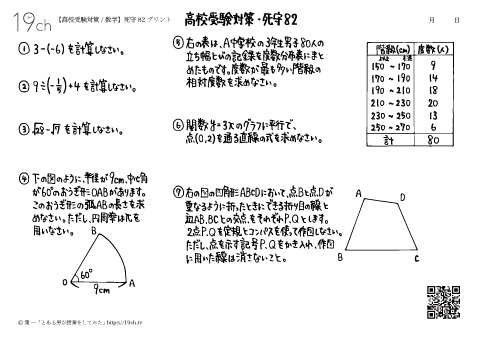 19ch
【高校受験対策/数学】死守82プリント
高校受験対策・死守82
月 日
① 3-(-6)を計算しなさい。
② 9÷(-1/5)+4を計算しなさい。
③ √28-√7を計算しなさい。
④ 下の図のように、半径が9cm、中心角
が60°のおうぎ形OABがあります。
このおうぎ形の弧ABの長さを求
めなさい。ただし、円周率はπを
用いなさい。
B
60°
O
9cm
A
⑤ 右の表は、A中学校の3年生男子80人の
立ち幅とびの記録を度数分布表にまと
めたものです。度数が最も多い階級の
相対度数を求めなさい。
階級(cm) 度数(人)
以上 未満
150 ~ 170 9
170 ~ 190 14
190 ~ 210 18
210 ~ 230 20
230 ~ 250 13
250 ~ 270 6
計 80
⑥ 関数y=3xのグラフに平行で、
点(0,2)を通る直線の式を求めなさい。
⑦ 右の図の四角形ABCDにおいて、点Bと点Dが
重なるように折ったときにできる折り目の線と
辺AB,BCとの交点をそれぞれP,Qとします。
2点P,Qを定規とコンパスを使って作図しなさい。
ただし、点を示す記号P,Qをかき入れ、作図
に用いた線は消さないこと。
A
D
B
C
© 葉一「とある男が授業をしてみた」https://19ch.tv